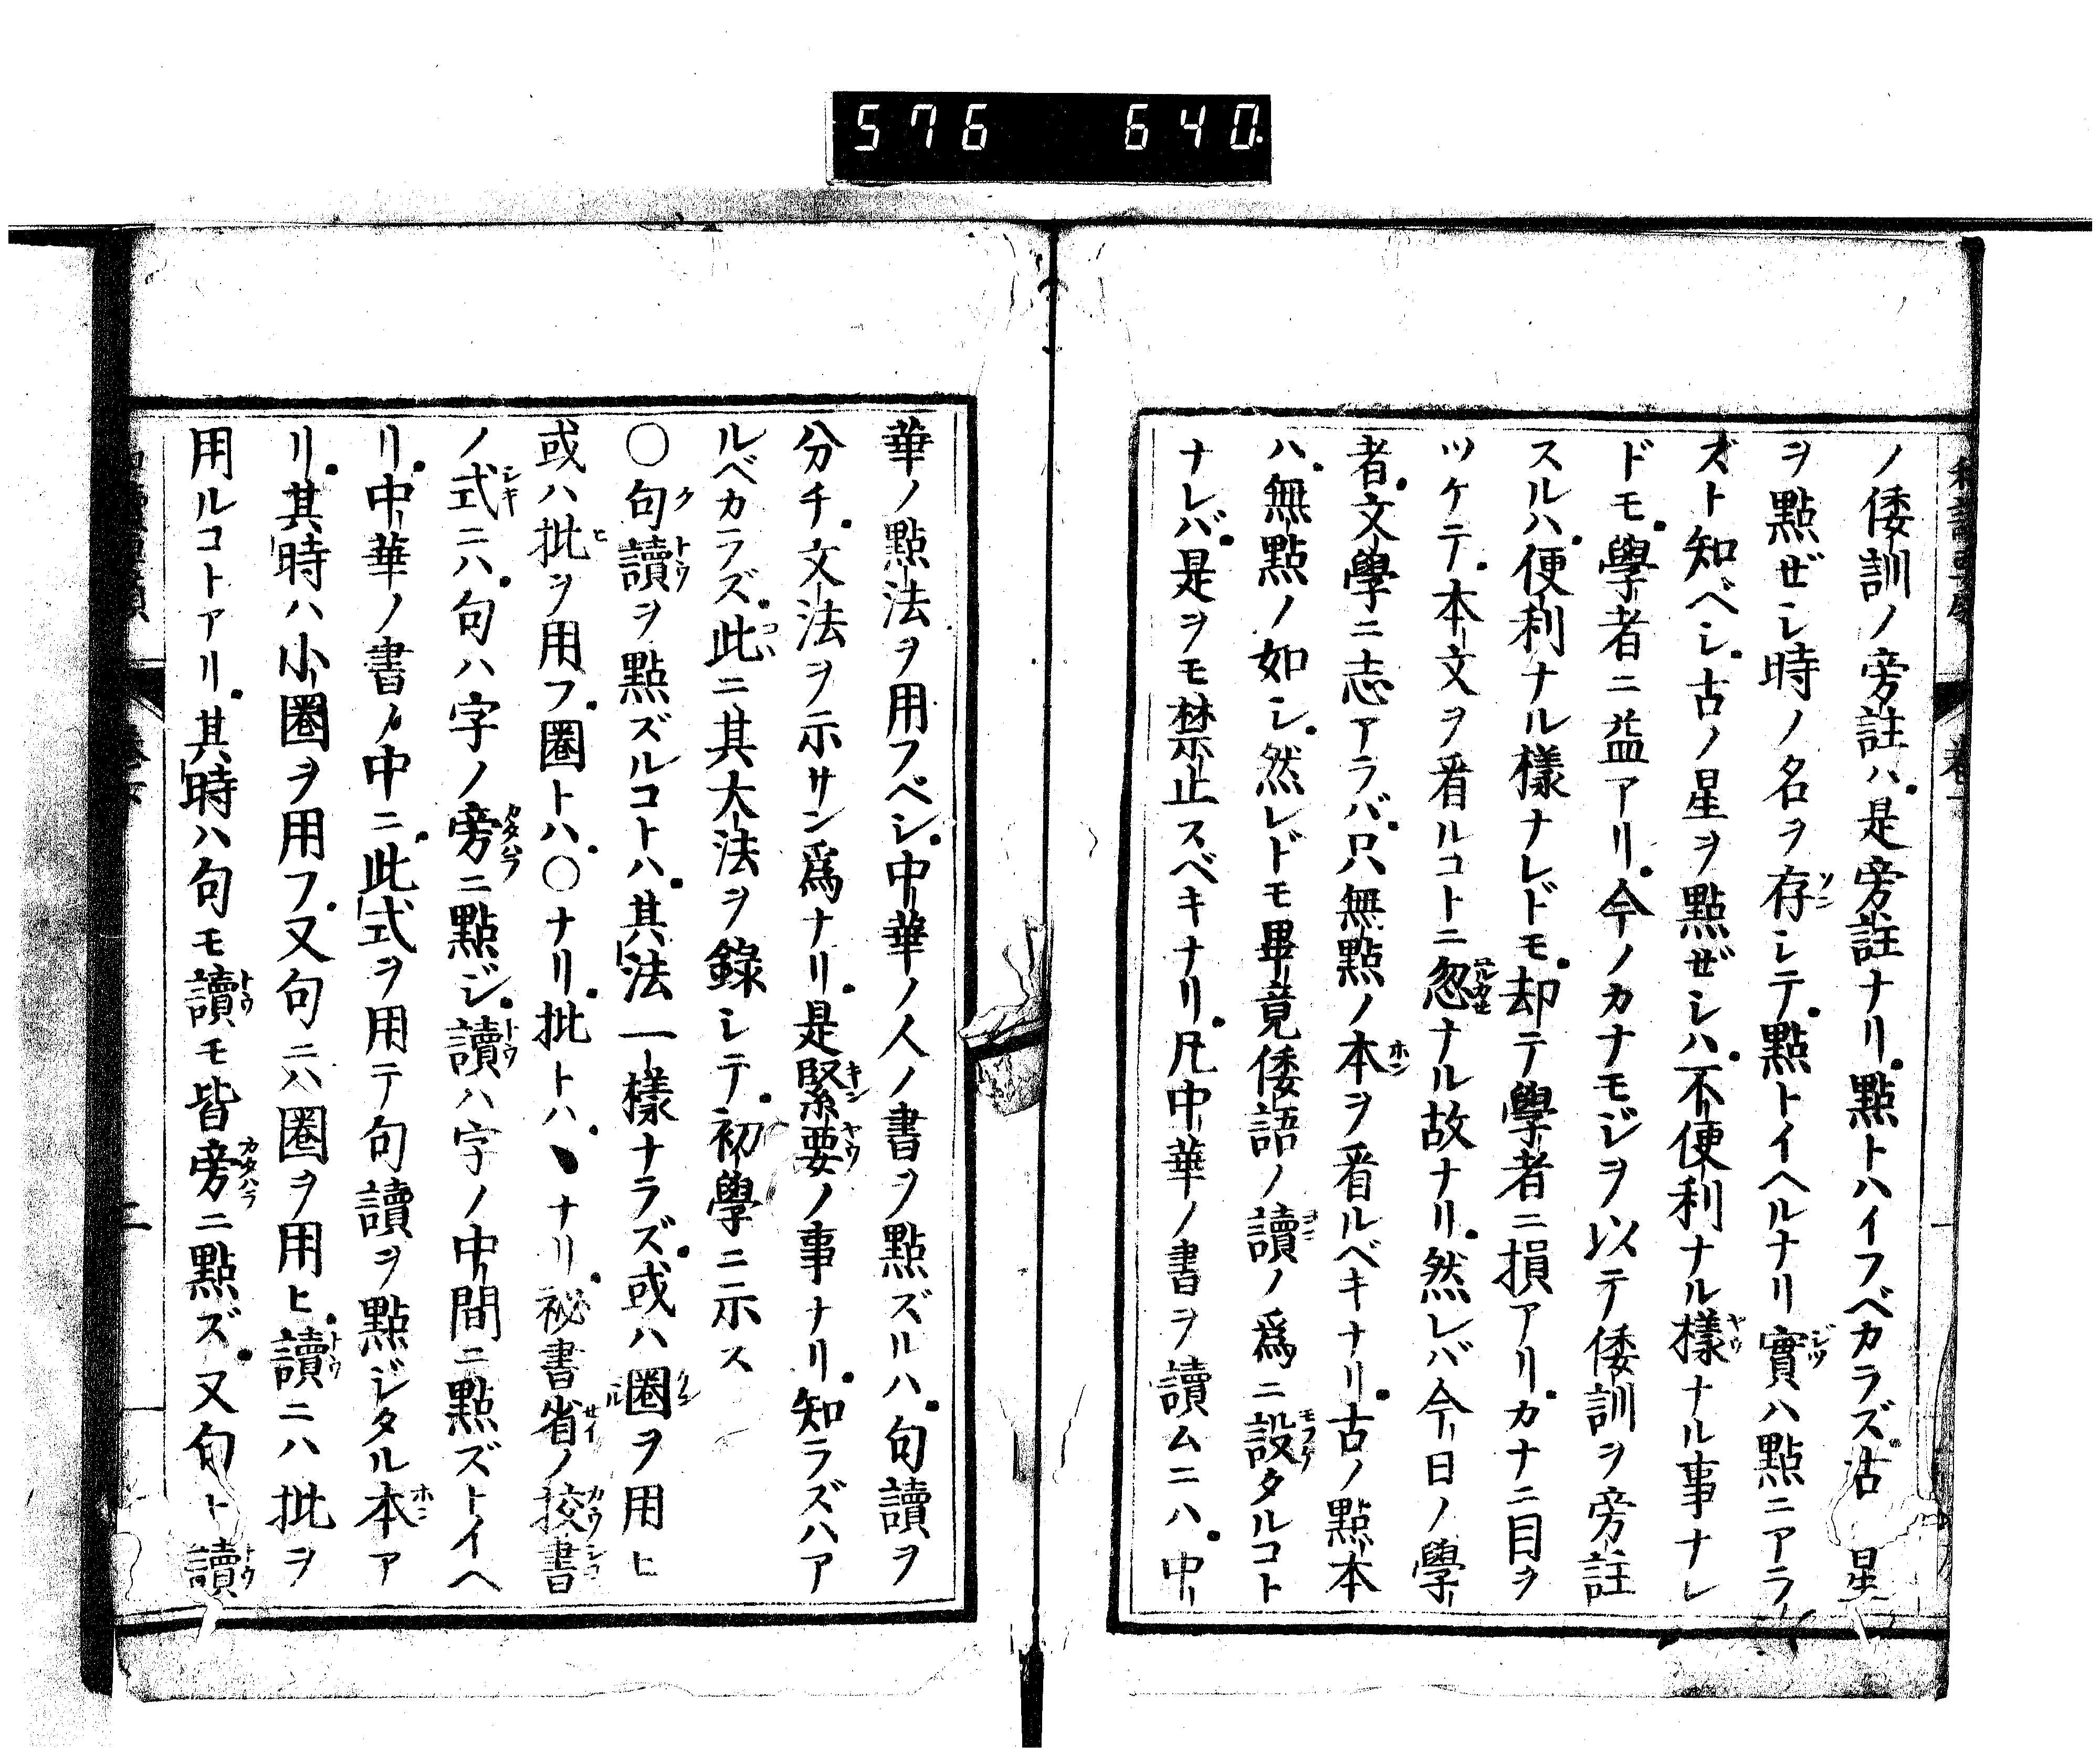 576 640.
ノ倭訓ノ旁註ハ是旁註ナリ點トハイフベカラズ古 星
ヲ點ゼシ時ノ名ヲ存シテ點トイヘルナリ實ハ點ニアラ
ズト知ベシ古ノ星ヲ點ゼシハ不便利ナル樣ナル事ナレ
ドモ學者ニ益アリ今ノカナモジヲ以テ倭訓ヲ旁註
スルハ便利ナル樣ナレドモ却テ學者ニ損アリカナニ目ヲ
ツケテ本文ヲ看ルコトニ忽ナル故ナリ然レバ今日ノ學
者文學ニ志アラバ只無點ノ本ヲ看ルベキナリ古ノ點本
ハ無點ノ如シ然レドモ畢竟倭語ノ讀ノ爲ニ設タルコト
ナレバ是ヲモ禁止スベキナリ凡中華ノ書ヲ讀ムニハ中
華ノ點法ヲ用フベシ中華ノ人ノ書ヲ點ズルハ句讀ヲ
分チ文法ヲ示サン爲ナリ是緊要ノ事ナリ知ラズハア
ルベカラズ此ニ其大法ヲ錄シテ初學ニ示ス
○句讀ヲ點ズルコトハ其法一樣ナラズ或ハ圈ヲ用ヒ
或ハ批ヲ用フ圈トハ○ナリ批トハ、ナリ祕書省ノ挍書
ノ式ニハ句ハ字ノ旁ニ點ジ讀ハ字ノ中間ニ點ズトイヘ
リ中華ノ書ノ中ニ此式ヲ用テ句讀ヲ點ジタル本ア
リ其時ハ小圈ヲ用フ又句ニハ圈ヲ用ヒ讀ニハ批ヲ
用ルコトアリ其時ハ句モ讀モ皆旁ニ點ズ又句ト讀